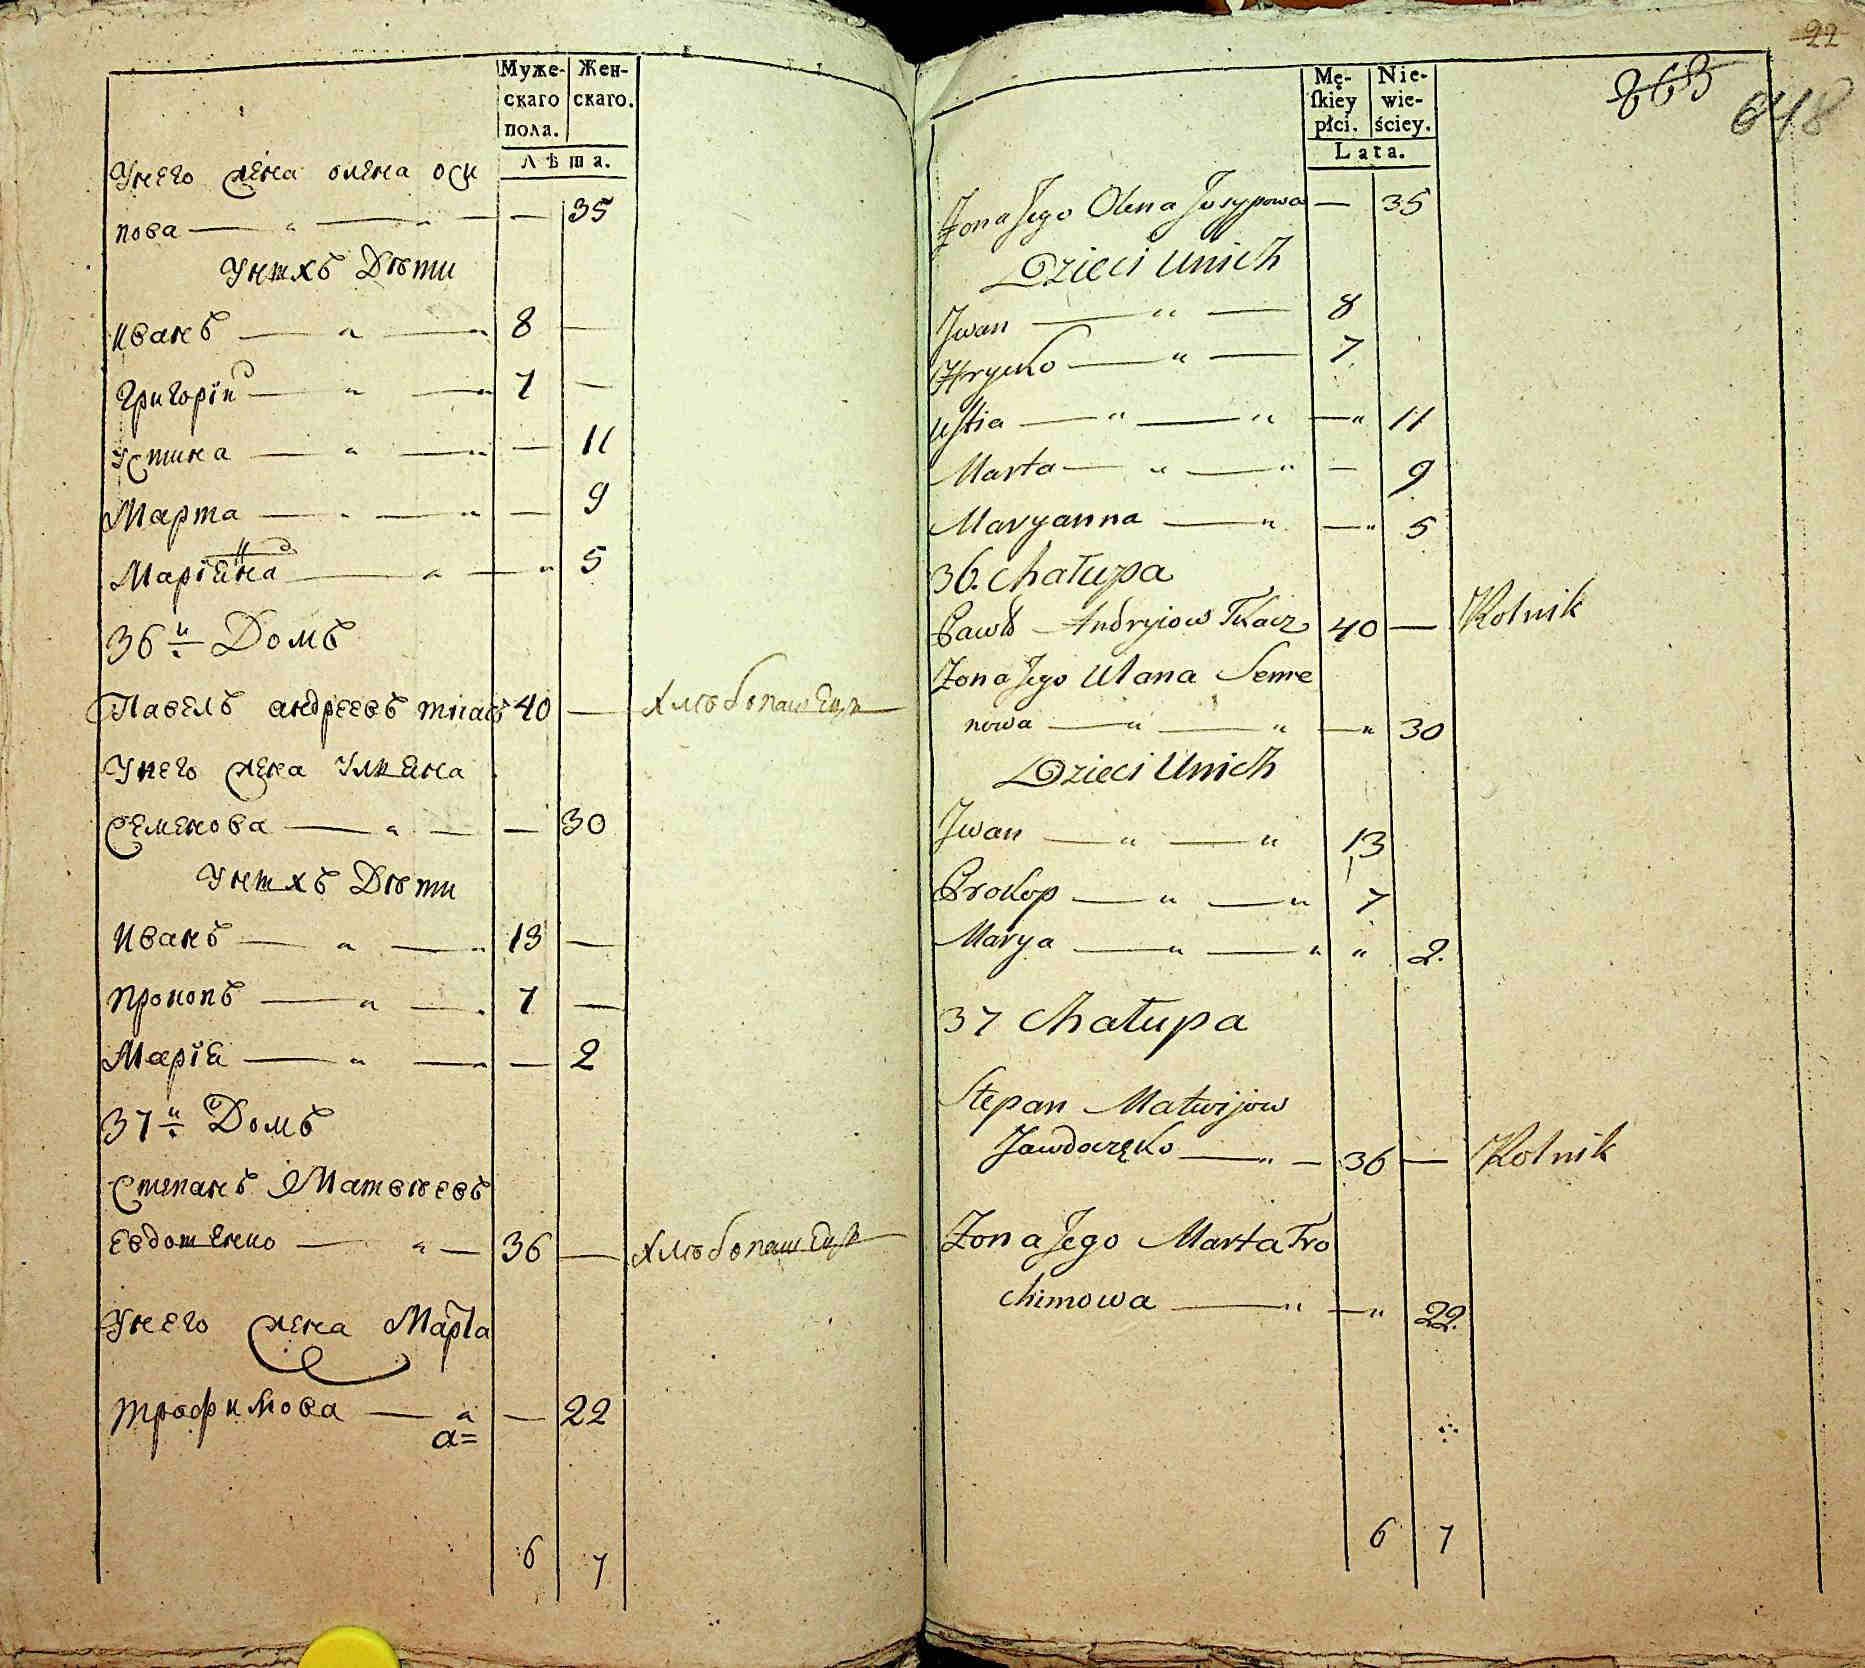 Муже-
скаго
пола.
Жен-
скаго.
Лѣта.
У него жена олена оси
пова — „ — „ — — 35
У нихъ Дѣти
Иванъ — „ — „ 8 —
Григорій — „ — „ 7 —
Устина — „ — „ — 11
Марта — „ — „ — 9
Маріяна — „ — „ 5
36й Домъ
Павелъ андреевъ ткачъ 40 — хлѣбопашецъ
У него жена Уляна
Семенова — „ — — 30
У нихъ Дѣти
Иванъ — „ — „ 13 —
Прокопъ — „ — „ 7 —
Марія — „ — „ — 2
37й Домъ
Степанъ Матвѣевъ
Евдошенко — „ — 36 — хлѣбопашецъ
У него жена Марта
трофимова — „ — 22
а=
6 7
22
863
648
Mę-
skiey
płci.
Nie-
wie-
ściey.
Lata.
Zona Jego Olena Josypowa — 35
Dzieci Unich
Jwan — „ — 8
Hrycko — „ — 7
Ustia — „ — „ — „ 11
Marta — „ — „ — 9
Maryanna — „ — „ 5
36. Chałupa
Pawło Andryiow Tkacz 40 — Rolnik
Zona Jego Ulana Seme
nowa — „ — „ — „ 30
Dzieci Unich
Jwan — „ — „ 13
Prokop — „ — „ 7
Marya — „ — „ „ 2.
37 Chałupa
Stepan Matwijow
Jawdoszęko — „ — 36 — Rolnik
Zona Jego Marta Tro
chimowa — „ — „ 22.
6 7